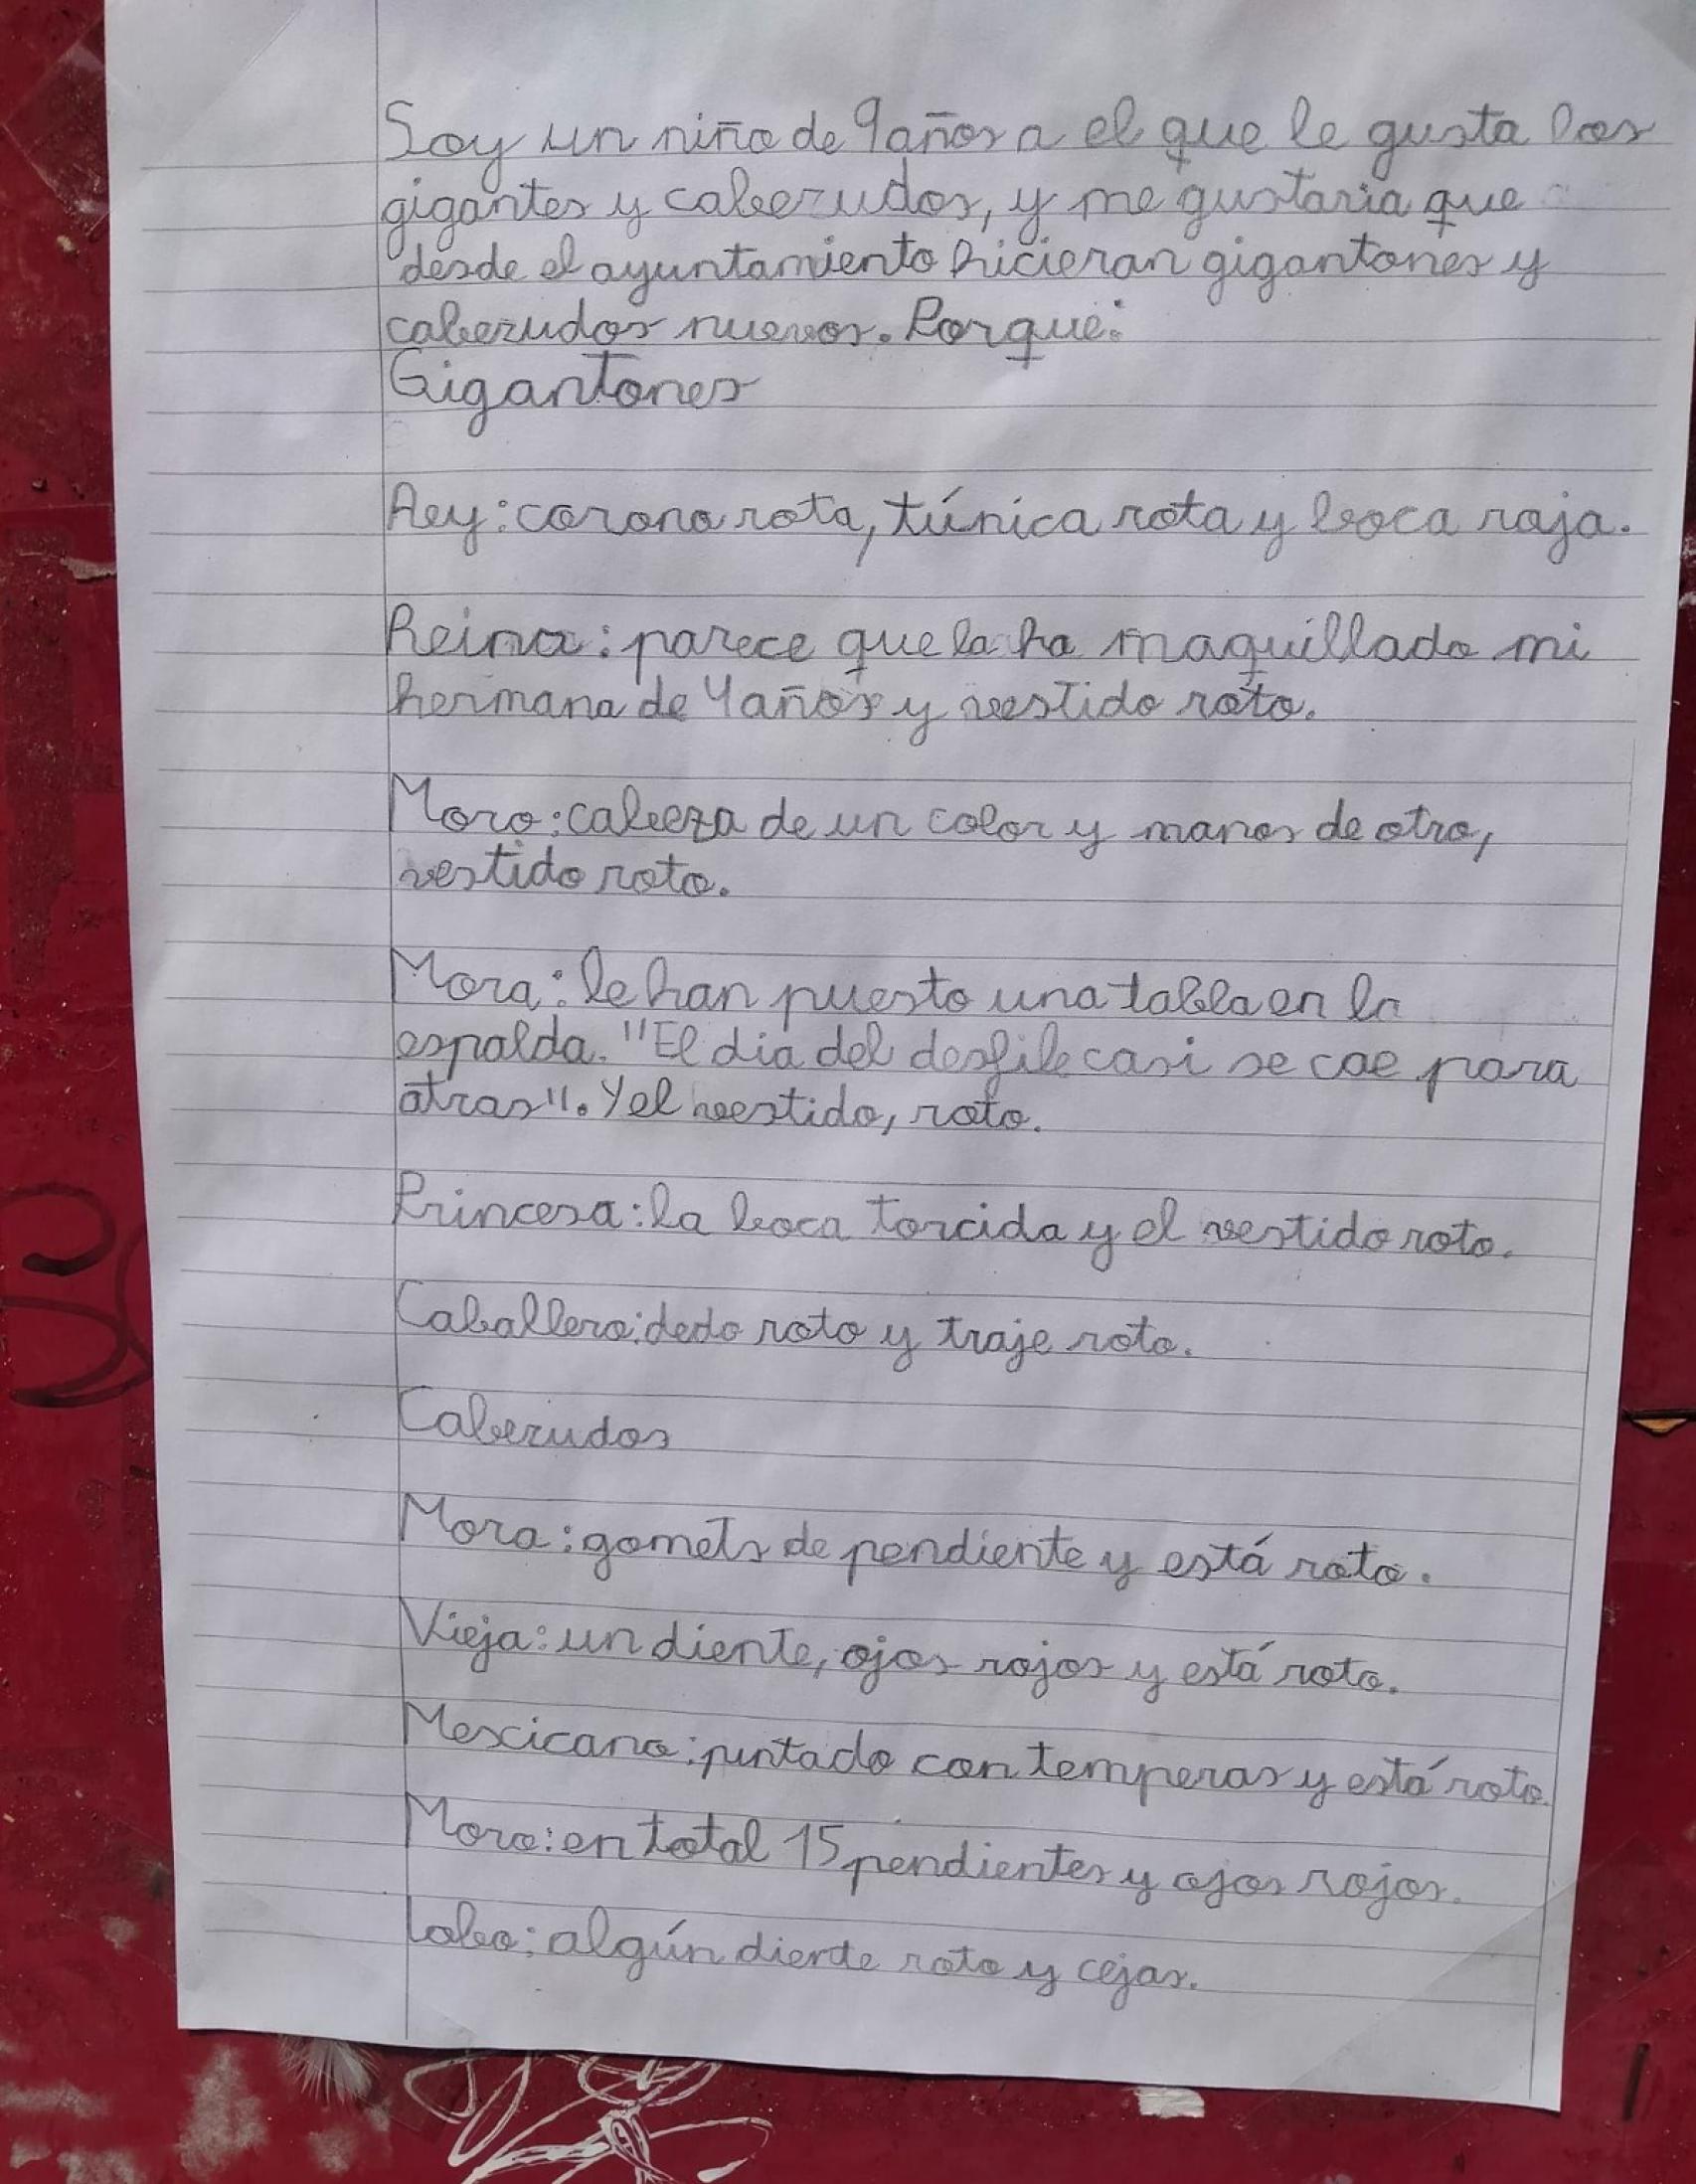 Soy un niño de 9 años a el que le gusta los
gigantes y cabezudos, y me gustaria que
desde el ayuntamiento hicieran gigantones y
cabezudos nuevos. Porque:
Gigantones
Rey: corona rota, túnica rota y boca roja.
Reina: parece que la ha maquillado mi
hermana de 4 años y vestido roto.
Moro: cabeza de un color y manos de otro,
vestido roto.
Mora: le han puesto una tabla en la
espalda. "El dia del desfile casi se cae para
atras". Y el vestido, roto.
Princesa: la boca torcida y el vestido roto.
Caballero: dedo roto y traje roto.
Cabezudos
Mora: gomets de pendiente y está roto.
Vieja: un diente, ojos rojos y está roto.
Mexicano: pintado con temperas y está roto.
Moro: en total 15 pendientes y ojos rojos.
Lobo: algún diente roto y cejas.